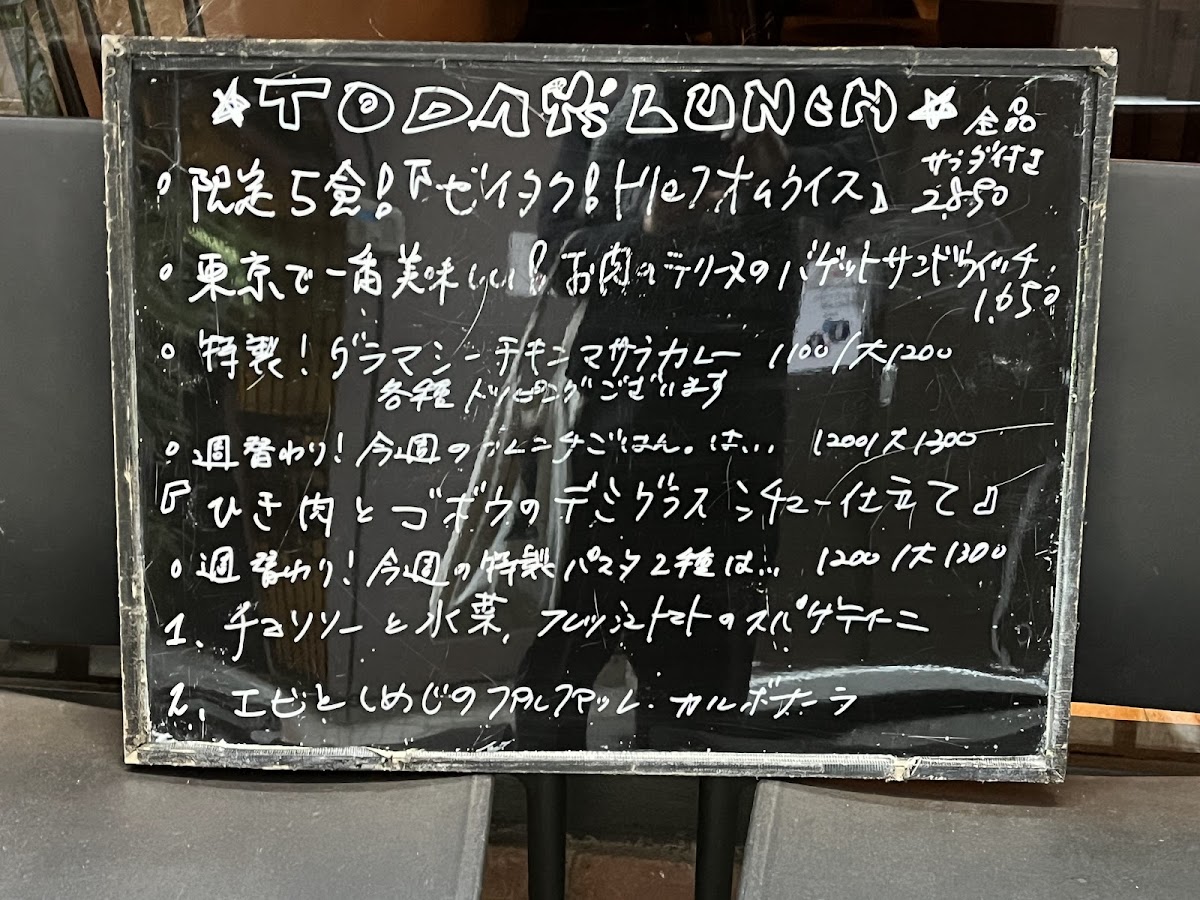 ☆TODAY'S LUNCH☆
全品
サラダ付き
○限定5食!『ゼイタク!トリュフオムライス』 2.850
○東京で一番美味しい!お肉のテリーヌのバゲットサンドウィッチ
1.650
○特製!グラマシーチキンマサラカレー 1100/大1200
各種トッピングございます
○週替わり!今週のフレンチごはん。は… 1200/大1300
『ひき肉とゴボウのデミグラスシチュー仕立て』
○週替わり!今週の特製パスタ2種は… 1200/大1300
1. チョリソーと水菜、フレッシュトマトのスパゲティーニ
2. エビとしめじのファルファッレ.カルボナーラ